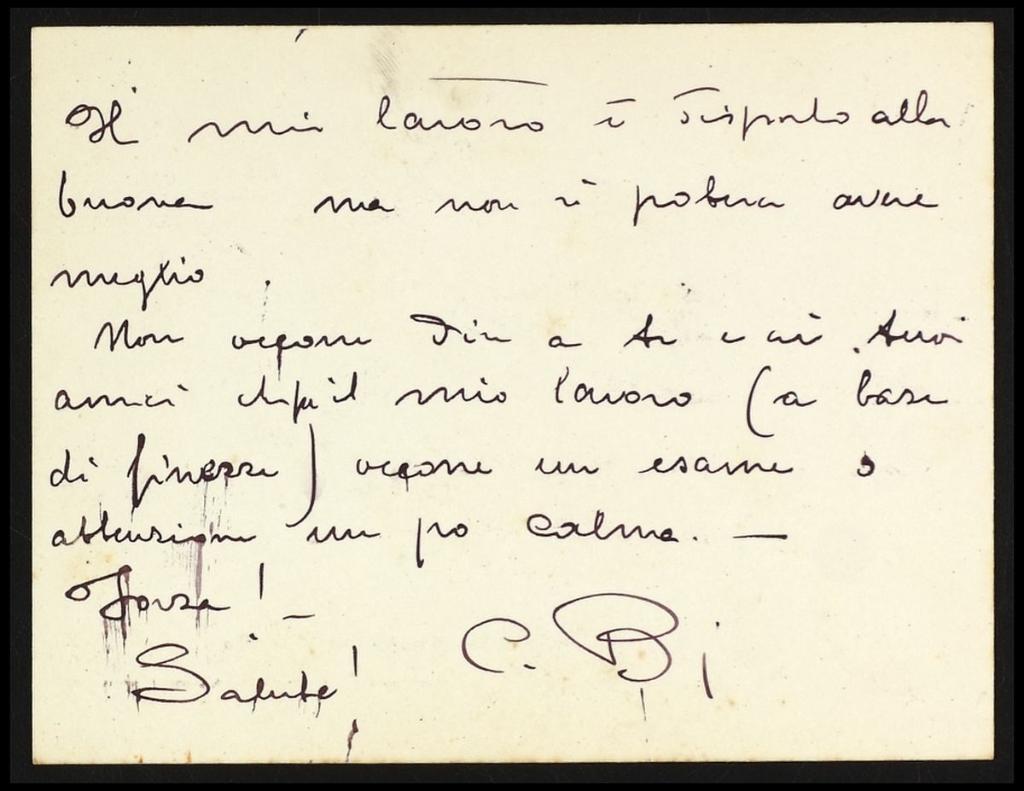 Il mio lavoro è disposto alla
buona ma non si poteva avere
meglio.
Non occorre dire a te e ai tuoi
amici che il mio lavoro (a base
di finezze) occorre un esame o
attenzione un po calma. —
Forza! —
Salute! C. B